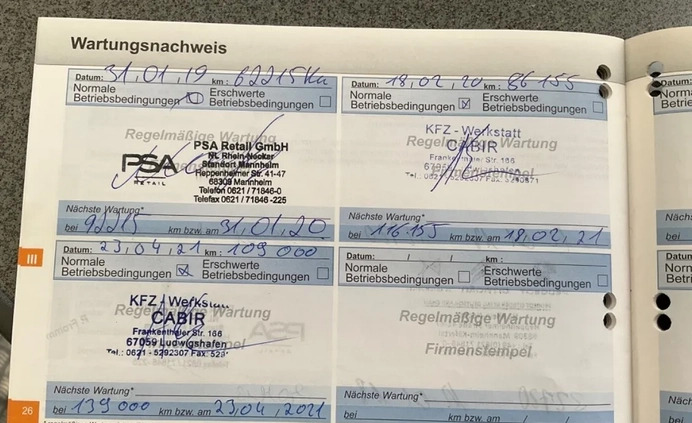 Wartungsnachweis
Datum: 31,01,19 km: 62215 Km
Normale Betriebsbedingungen
Erschwerte Betriebsbedingungen
Regelmäßige Wartung
PSA
RETAIL
PSA Retail GmbH
NL Rhein-Neckar
Standort Mannheim
Heppenheimer Str. 41-47
68309 Mannheim
Telefon 0621 / 71846-0
Telefax 0621 / 71846 -225
Nächste Wartung*
bei 92215 km bzw. am 31,01,20
Datum: 18,02,20 km: 86 155
Normale Betriebsbedingungen
Erschwerte Betriebsbedingungen
Regelmäßige Wartung
KFZ - Werkstatt
CABIR
Frankenthaler Str. 186
Nächste Wartung*
bei 116.155 km bzw. am 18,02,21
III
Datum: 23,04,21 km: 109 000
Normale Betriebsbedingungen
Erschwerte Betriebsbedingungen
Regelmäßige Wartung
KFZ - Werkstatt
CABIR
Frankenthaler Str. 186
67059 Ludwigshafen
Tel.: 0621 - 5292307 Fax: 529
Nächste Wartung*
bei 139 000 km bzw. am 23,04,2021
Datum: / / km:
Normale Betriebsbedingungen
Erschwerte Betriebsbedingungen
Regelmäßige Wartung
Firmenstempel
Nächste Wartung*
bei km bzw. am / /
26
Datum:
Norma
Betrieb
Nächs
bei
Datum:
Norma
Betrieb
Näch
bei